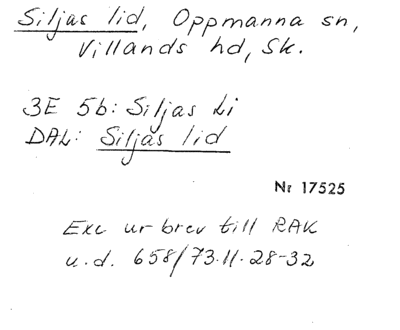 Siljas lid, Oppmanna sn,
Villands hd, Sk.
3E 5b: Siljas Li
DAL: Siljas lid
Nr 17525
Exc ur brev till RAK
u.d. 658/73.11.28-32